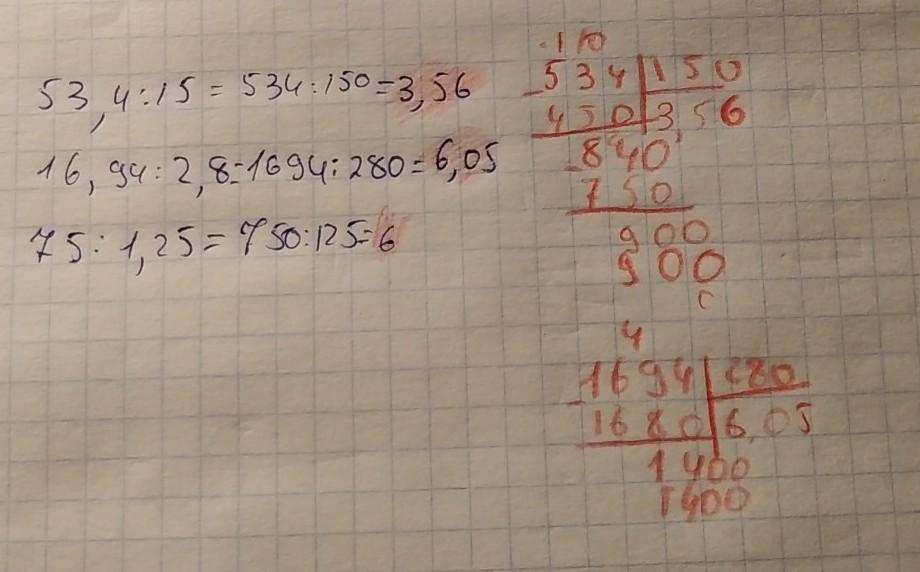 53,4:15=534:150=3,56
16,94:2,8=1694:280=6,05
75:1,25=750:125=6
·1 10
534|150
450|3,56
840
750
900
900
0
4
1694|280
1680|6,05
1400
1400